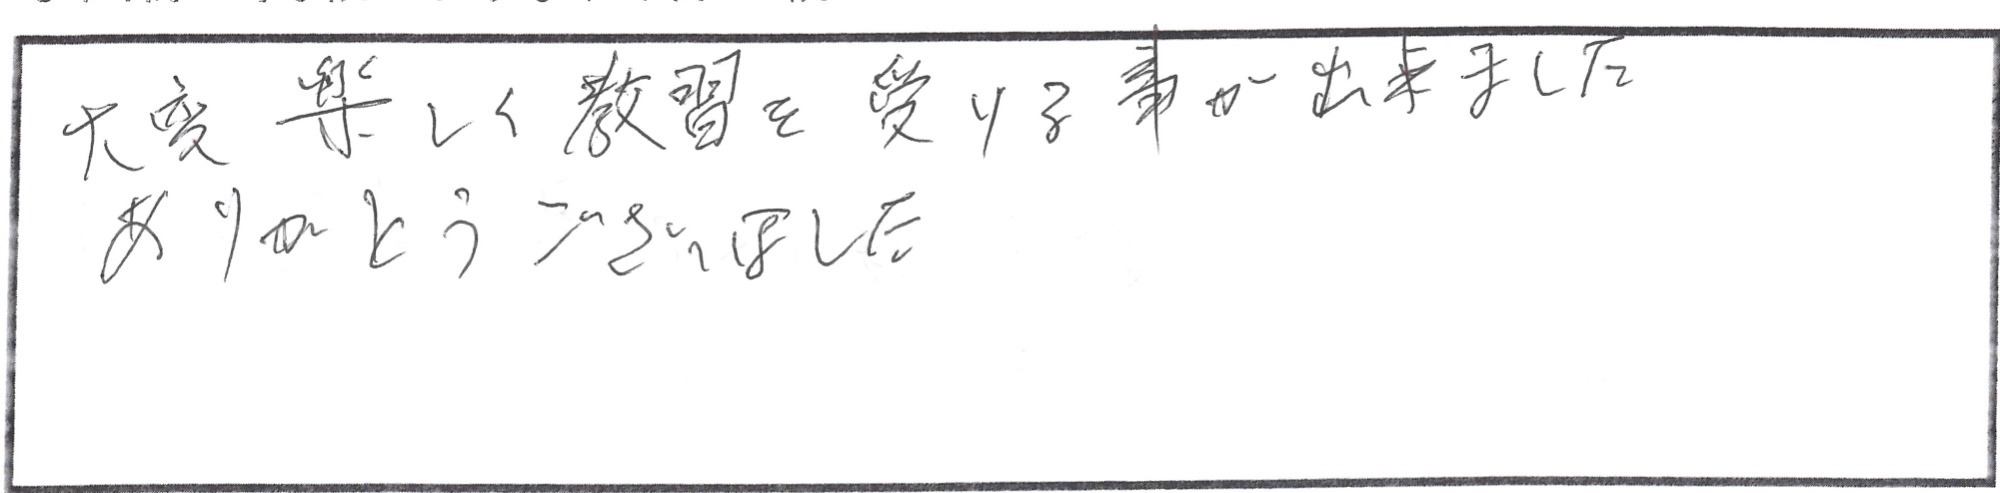 大変楽しく教習を受ける事が出来ました
ありがとうございました